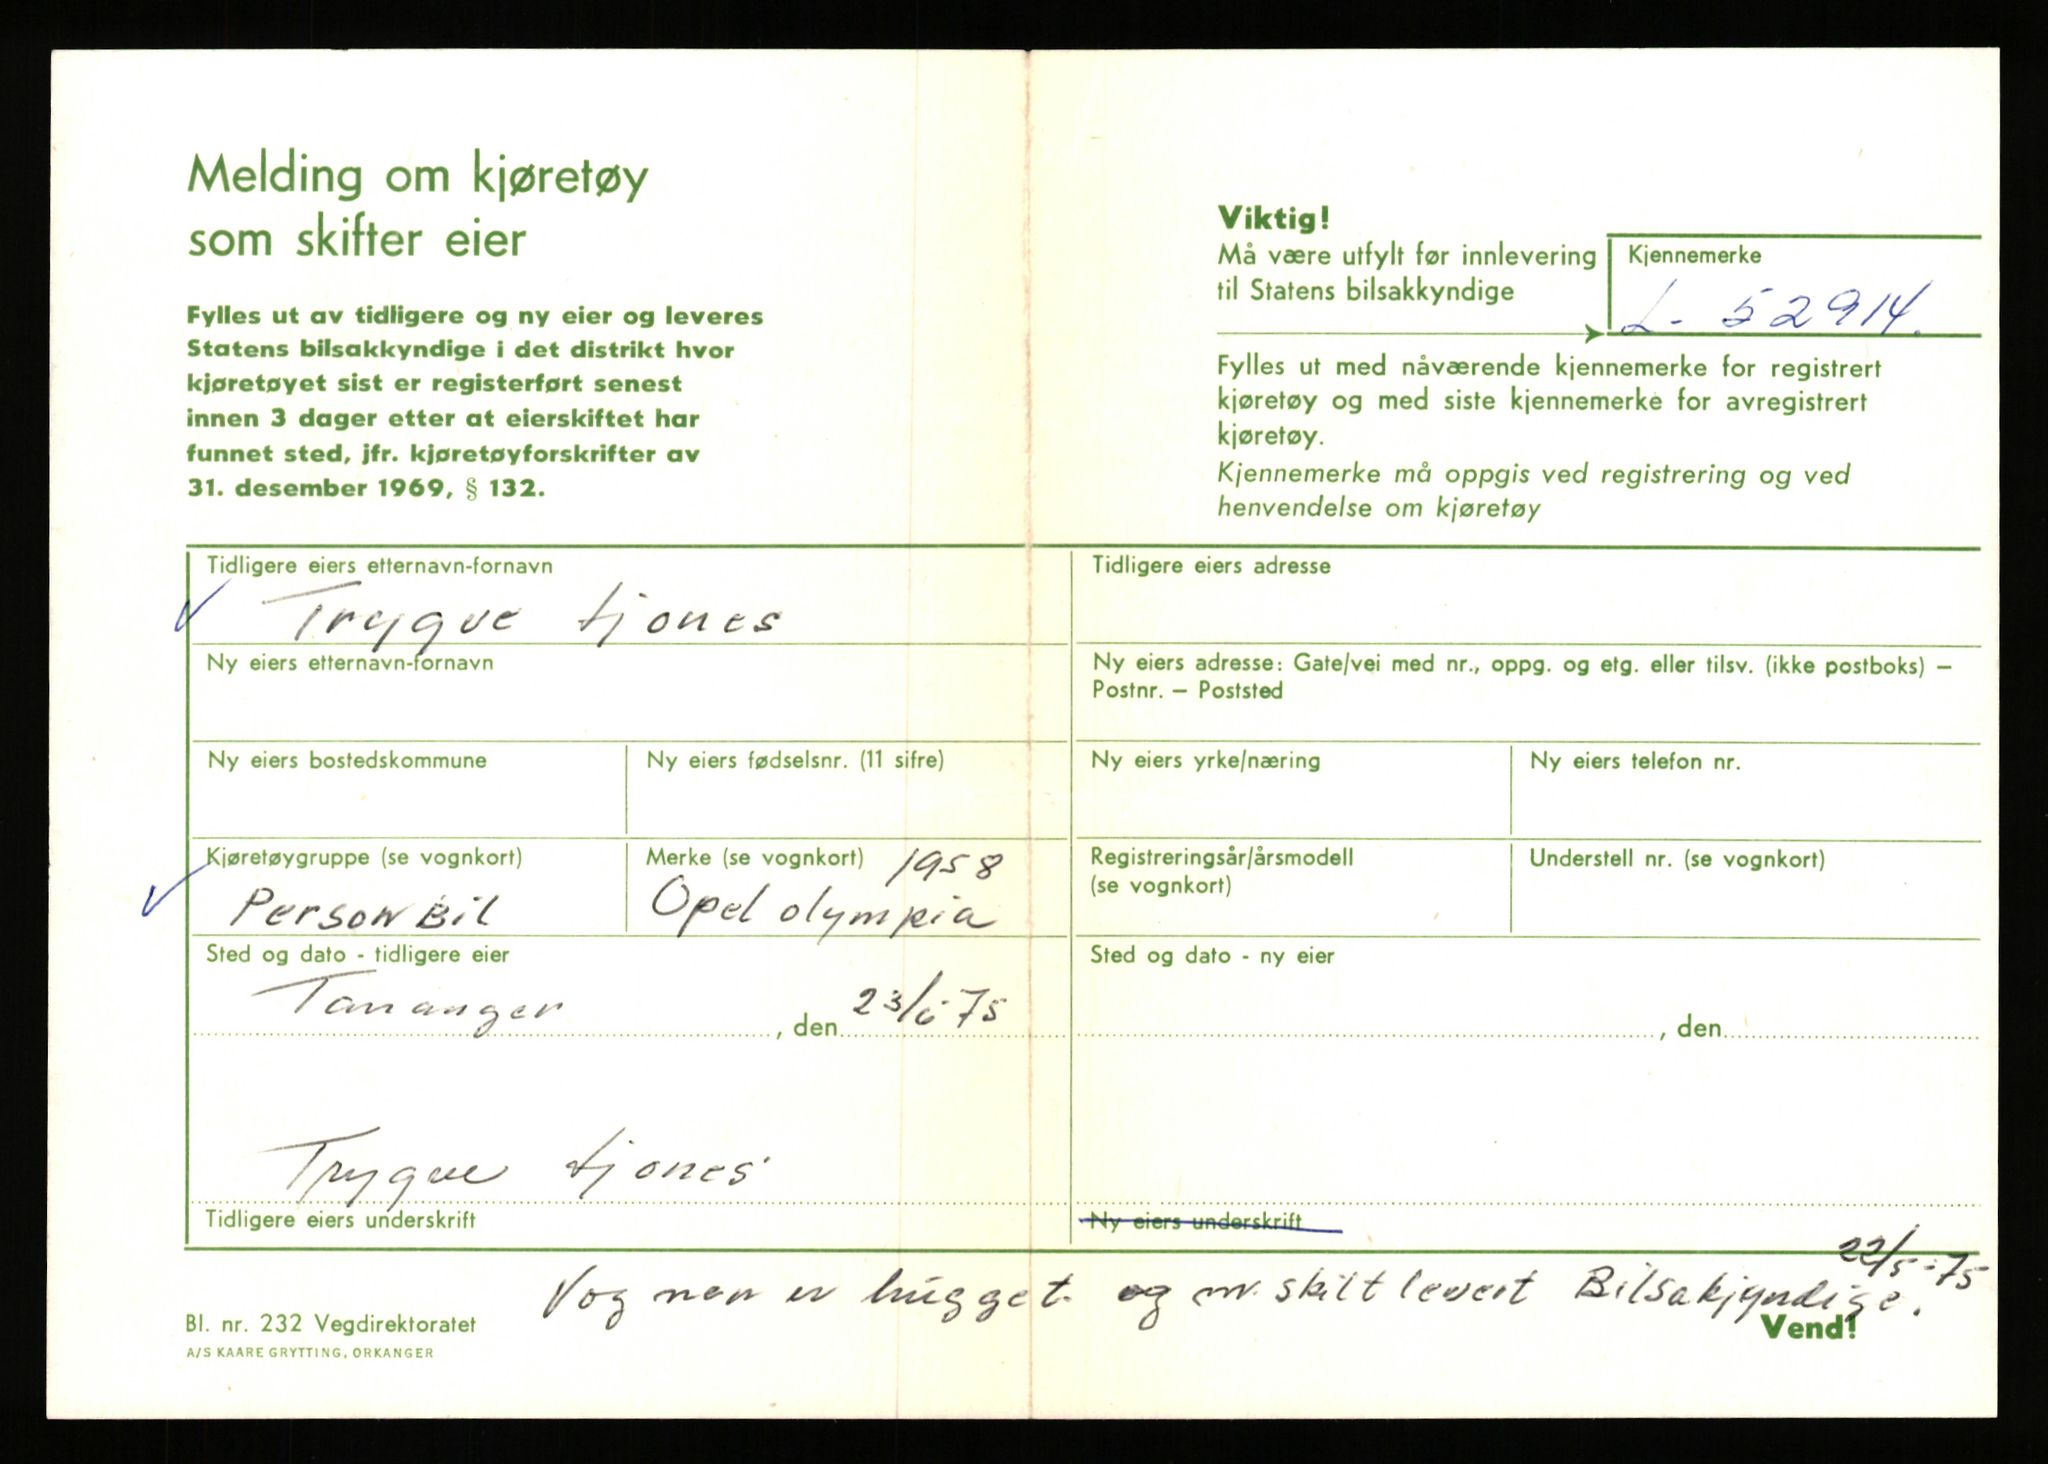 Melding om kjøretøy
som skifter eier
Fylles ut av tidligere og ny eier og leveres
Statens bilsakkyndige i det distrikt hvor
kjøretøyet sist er registerført senest
innen 3 dager etter at eierskiftet har
funnet sted, jfr. kjøretøyforskrifter av
31. desember 1969, § 132.
Viktig!
Må være utfylt før innlevering
til Statens bilsakkyndige
Kjennemerke
L- 52914.
Fylles ut med nåværende kjennemerke for registrert
kjøretøy og med siste kjennemerke for avregistrert
kjøretøy.
Kjennemerke må oppgis ved registrering og ved
henvendelse om kjøretøy
Tidligere eiers etternavn-fornavn
Trygve tjones
Tidligere eiers adresse
Ny eiers etternavn-fornavn
Ny eiers adresse: Gate/vei med nr., oppg. og etg. eller tilsv. (ikke postboks) –
Postnr. – Poststed
Ny eiers bostedskommune
Ny eiers fødselsnr. (11 sifre)
Ny eiers yrke/næring
Ny eiers telefon nr.
Kjøretøygruppe (se vognkort)
Person Bil
Merke (se vognkort) 1958
Opel olympia
Registreringsår/årsmodell
(se vognkort)
Understell nr. (se vognkort)
Sted og dato - tidligere eier
Tananger , den 23/6 75
Sted og dato - ny eier
, den
Trygve tjones
Tidligere eiers underskrift
Ny eiers underskrift
22/5-75
Vognen er hugget og nr. skilt levert Bilsakjyndige.
Bl. nr. 232 Vegdirektoratet
A/S KAARE GRYTTING, ORKANGER
Vend!